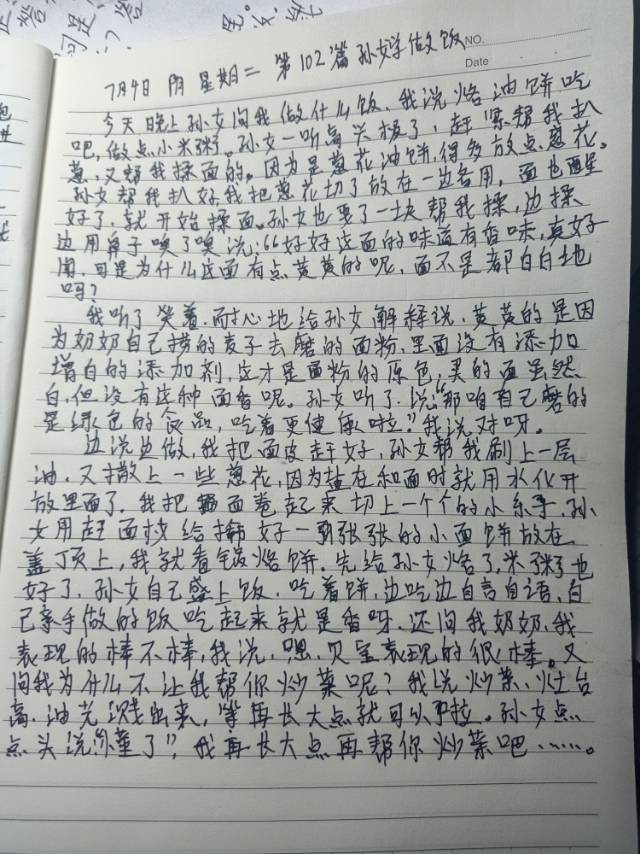 NO.
Date
7月4日 阴 星期二 第102篇 孙女学做饭
今天晚上孙女问我做什么饭，我说烙油饼吃
吧，做点小米粥。孙女一听高兴极了，赶紧帮我扒
葱，又帮我揉面的。因为是葱花油饼，得多放点葱花。
孙女帮我扒好我把葱花切了放在一边备用，面也醒
好了，就开始揉面。孙女也要了一块帮我揉，边揉
边用鼻子嗅了嗅说：“好好这面的味道有香味，真好
闻，可是为什么这面有点黄黄的呢，面不是都白白地
吗？
我听了笑着，耐心地给孙女解释说，黄黄的是因
为奶奶自己捞的麦子去磨的面粉，里面没有添加
增白的添加剂，这才是面粉的原色，买的面虽然
白，但没有这种面香呢。孙女听了，说“那咱自己磨的
是绿色的食品，吃着更健康啦。”我说对呀。
边说边做，我把面皮赶好，孙女帮我刷上一层
油，又撒上一些葱花，因为盐在和面时就用水化开
放里面了，我把面卷起来切上一个个的小条子，孙
女用赶面杖给擀好一张张的小面饼放在
盖顶上，我就看锅烙饼。先给孙女烙了，米粥也
好了，孙女自己盛上饭，吃着饼，边吃边自言自语，自
己亲手做的饭吃起来就是香呀，还问我奶奶，我
表现的棒不棒，我说，嗯，贝宝表现的很棒。又
问我为什么不让我帮你炒菜呢？我说炒菜，灶台
高，油光溅出来，等再长大点就可以了啦。孙女点
点头说“懂了”，我再长大点再帮你炒菜吧……。